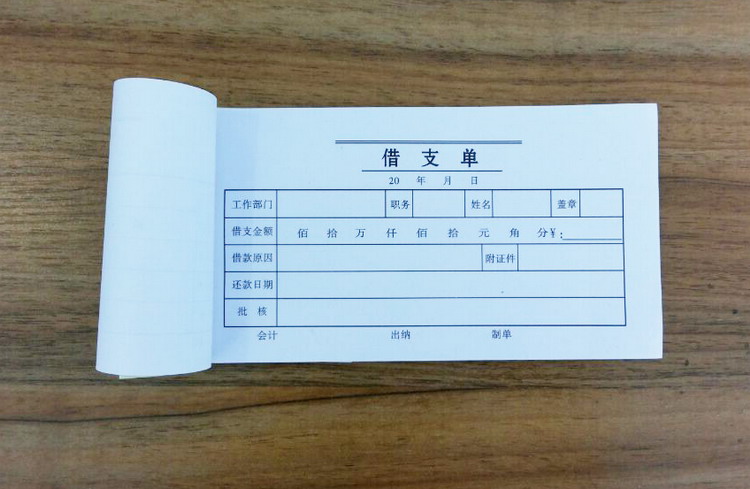 借支单
20 年 月 日
工作部门 职务 姓名 盖章
借支金额 佰 拾 万 仟 佰 拾 元 角 分¥:
借款原因 附证件
还款日期
批 核
会计 出纳 制单